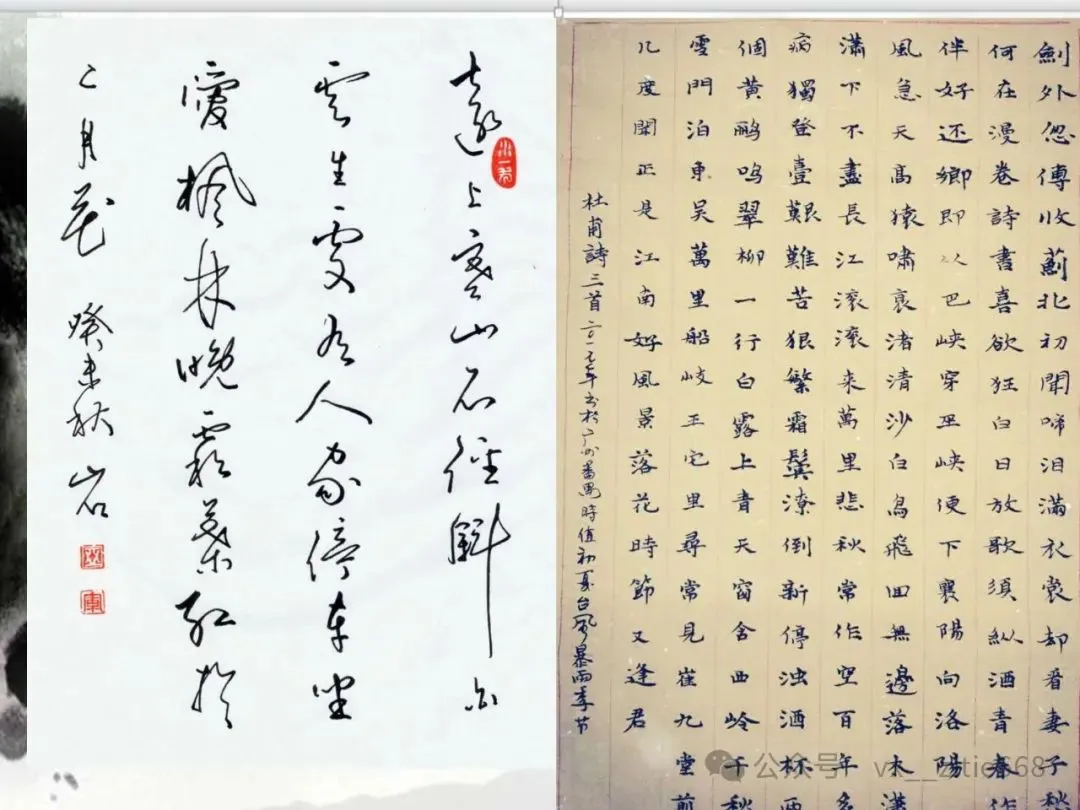 遠上寒山石徑斜白
雲生處有人家停車坐
愛楓林晚霜葉紅於
二月花 癸未秋 岩
劍外忽傳收薊北初聞啼泪滿衣裳却看妻子愁
何在漫卷詩書喜欲狂白日放歌須纵酒青春作
伴好还鄉即从巴峡穿巫峡便下襄陽向洛陽
風急天高猿嘯哀渚清沙白鳥飛回無邊落木瀟
瀟下不盡長江滚滚来萬里悲秋常作空百年多
病獨登臺艱難苦恨繁霜鬓潦倒新停浊酒杯两
個黄鹂鸣翠柳一行白露上青天窗含西岭千秋
雪門泊東吴萬里船岐王宅里尋常見崔九堂前
几度聞正是江南好風景落花時節又逢君
杜甫詩三首二〇一七年书於广州番禺時值初夏台風暴雨季节
公众号